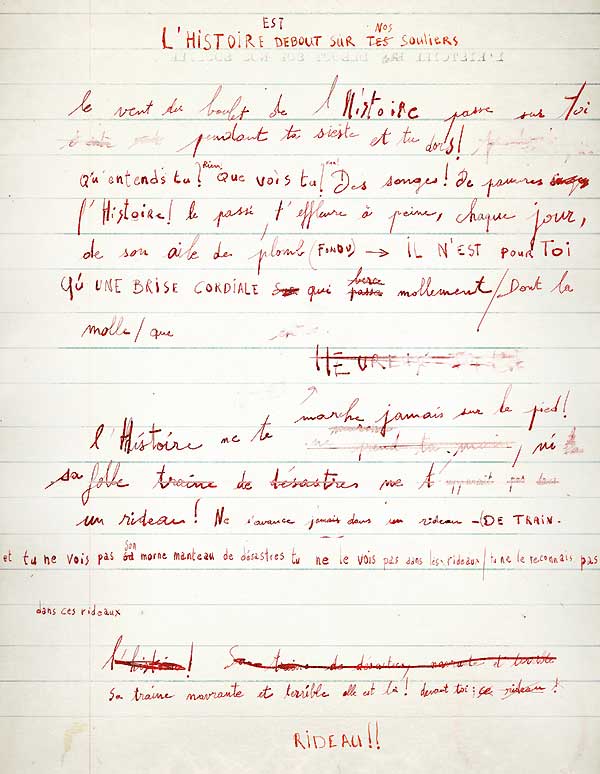 EST NOS
L'HISTOIRE DEBOUT SUR TES SOULIERS
le vent du boulet de l'HIStoire passe sur toi
pendant ta sieste et tu dors!
Rien!
Qu'entends tu? Que vois tu? Des songes! de pauvres songes
l'Histoire! le passé, t'effleure à peine, chaque jour,
de son aile de plomb (FONDU) → IL N'EST POUR TOI
berce
QU'UNE BRISE CORDIALE qui passe mollement / Dont la
molle / que
HEUREU
marche jamais sur le pied!
l'Histoire ne te
prend la main, ni la
sa folle traine de désastres ne t'apparait pas dans
un rideau! Ne s'avance jamais dans un rideau - (DE TRAIN.
son
et tu ne vois pas morne manteau de désastres tu ne le vois pas dans les rideaux / tu ne le reconnais pas
dans ces rideaux
l'histoire! Sa traine de désastres, navrante et terrible
Sa traine navrante et terrible elle est là! devant toi; ce rideau!
RIDEAU!!